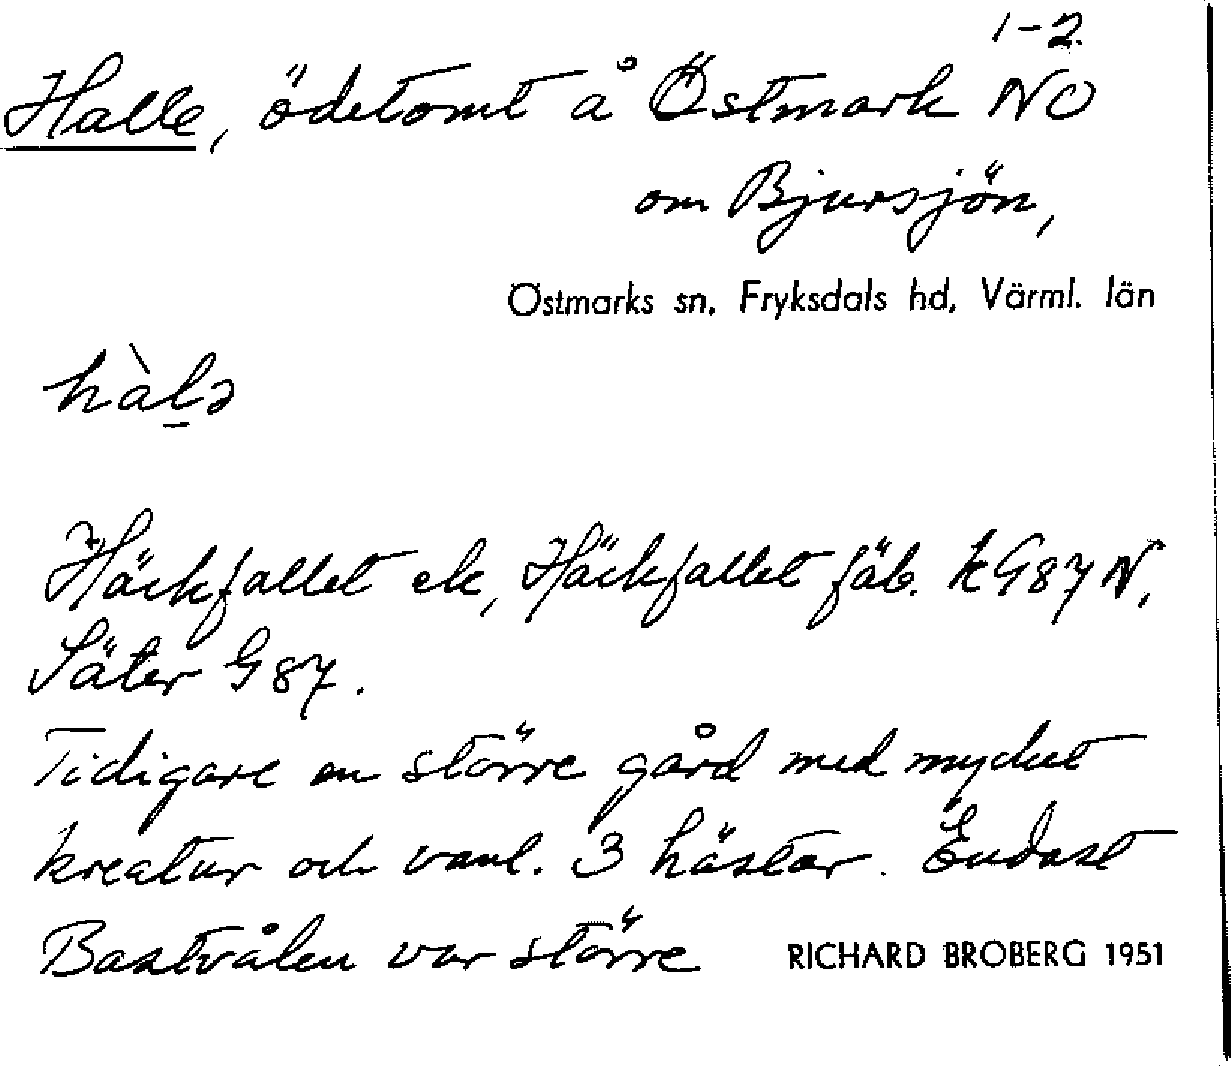 1-2.
Halle, ödetomt å Östmark NO
om Bjursjön,
Östmarks sn, Fryksdals hd, Värml. län
hàlə
Häckfallet ek, Häckfallet fäb. k G87 N,
Säter G 87.
Tidigare en större gård med mycket
kreatur och vanl. 3 hästar. Endast
Bastvålen var större
RICHARD BROBERG 1951